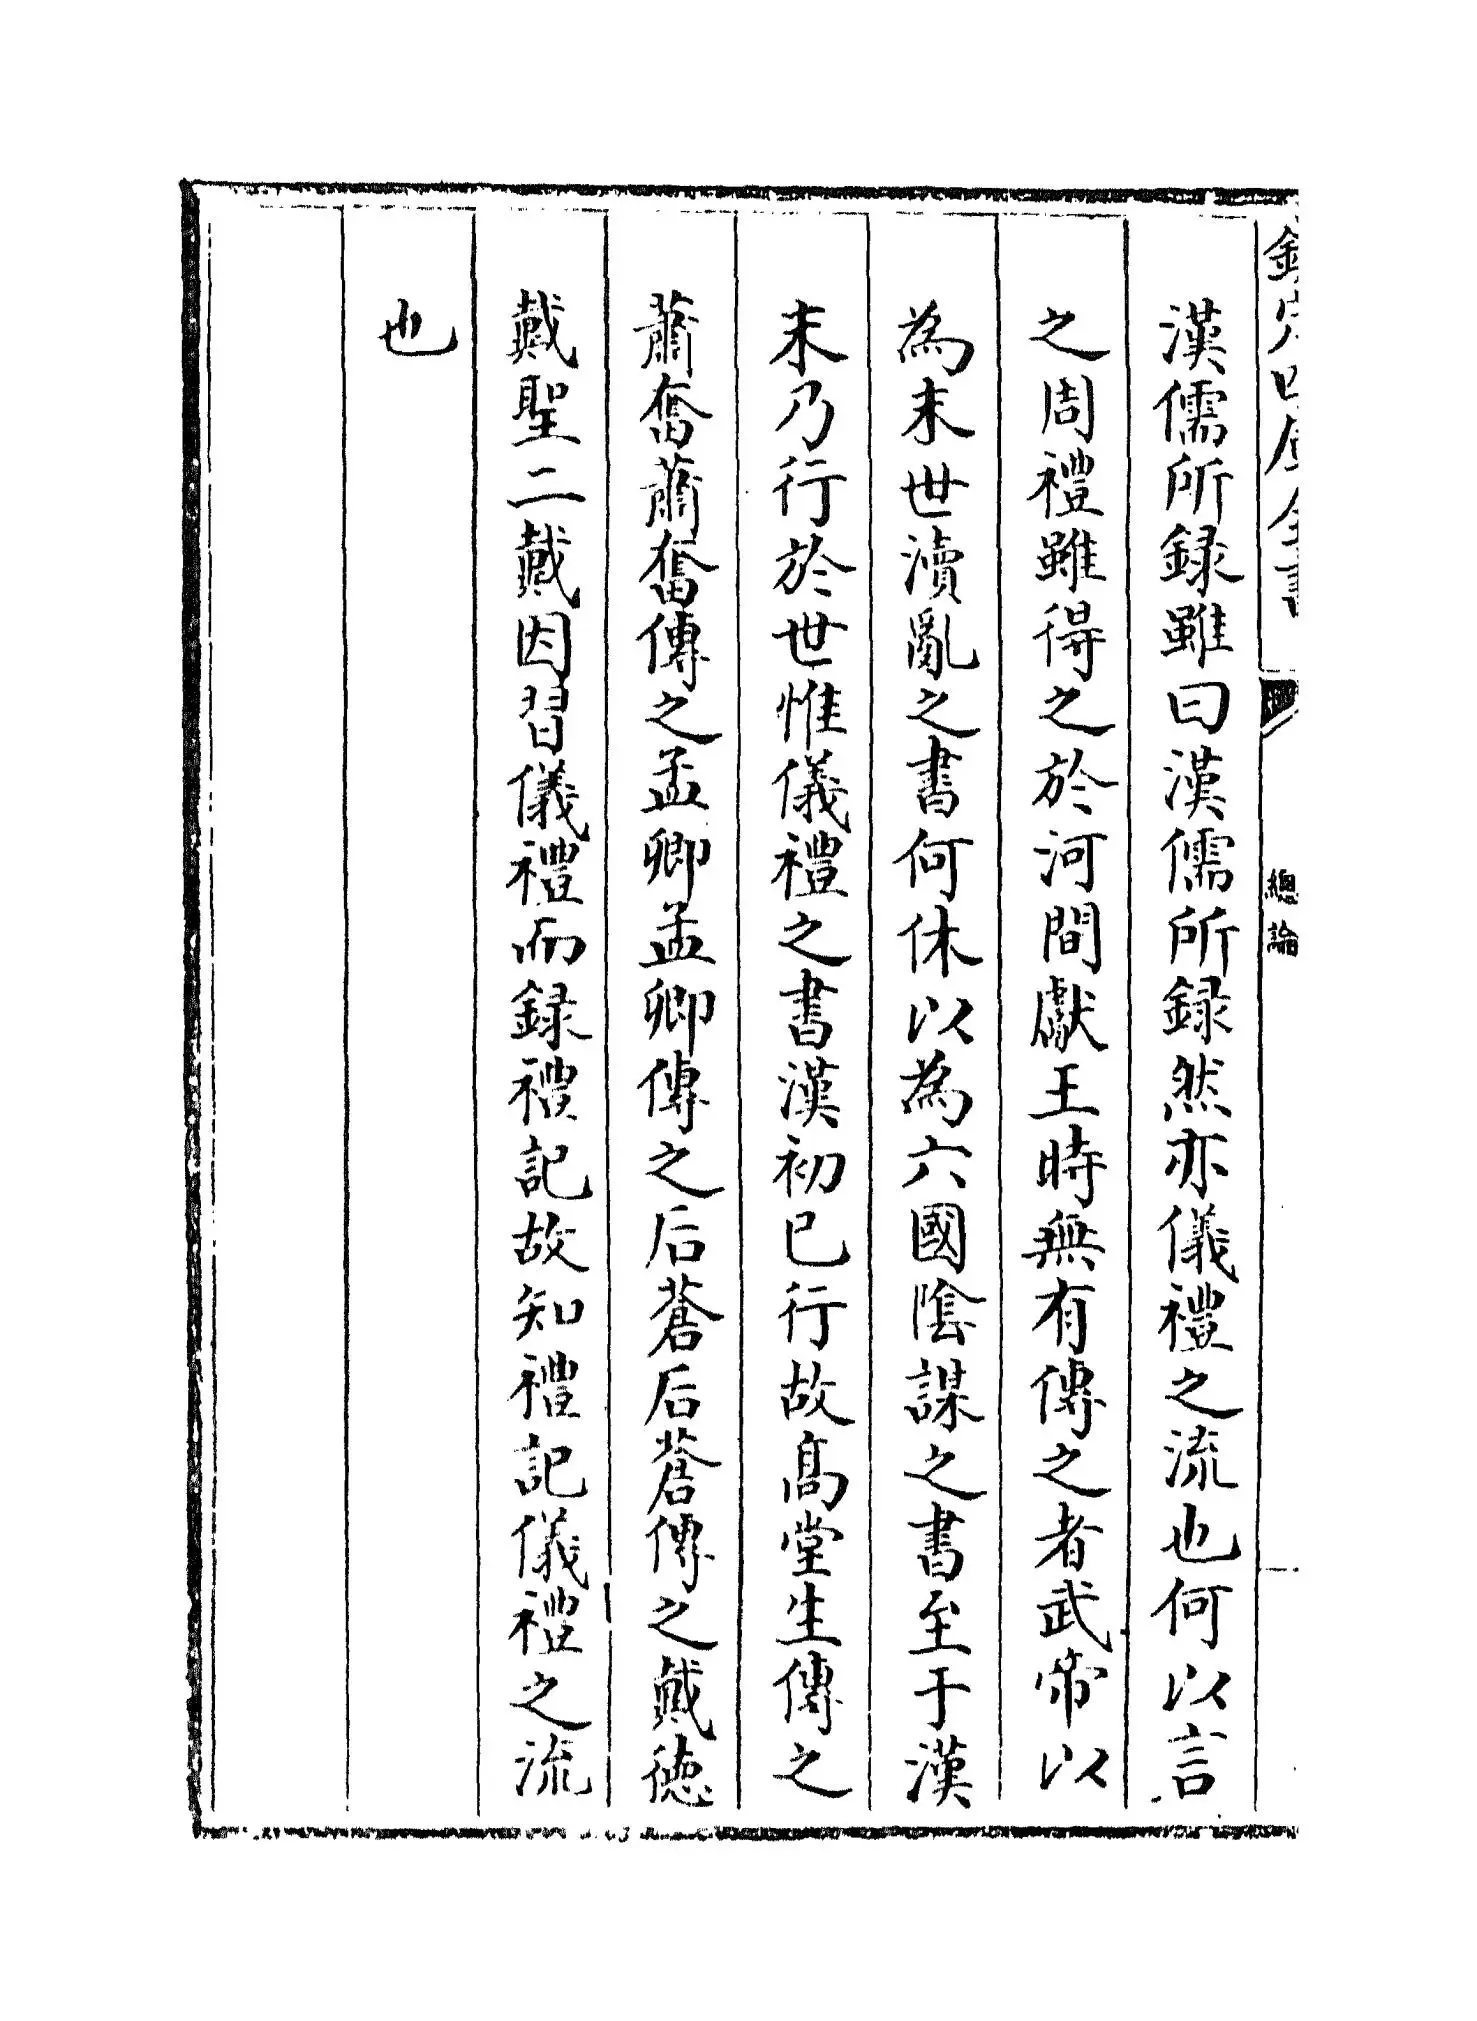 欽定四庫全書
總論
漢儒所録雖曰漢儒所録然亦儀禮之流也何以言
之周禮雖得之於河間獻王時無有傳之者武帝以
為末世瀆亂之書何休以為六國隂謀之書至于漢
末乃行於世惟儀禮之書漢初已行故髙堂生傳之
蕭奮蕭奮傳之孟卿孟卿傳之后蒼后蒼傳之戴德
戴聖二戴因習儀禮而録禮記故知禮記儀禮之流
也